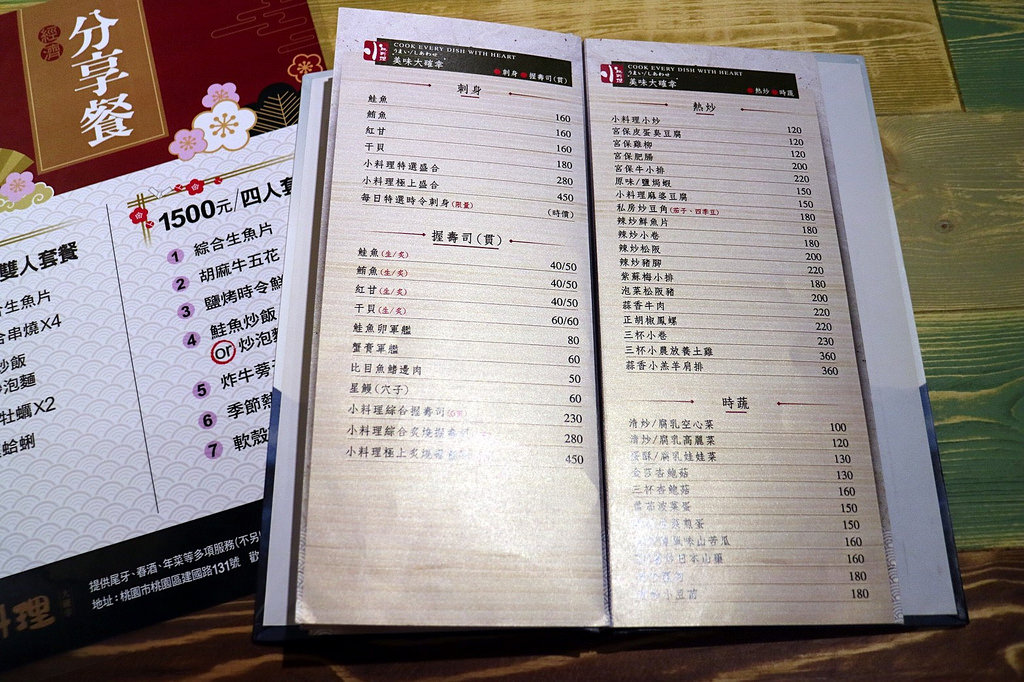 經濟
分享餐
雙人套餐
生魚片
串燒X4
炒飯
泡麵
牡蠣X2
蛤蜊
1500元/四人套
1 綜合生魚片
2 胡麻牛五花
3 鹽烤時令鮮
4 鮭魚炒飯
or 炒泡麵
5 炸牛蒡
6 季節
7 軟殼
提供尾牙、春酒、年菜等多項服務(不另
地址：桃園市桃園區建國路131號
料理
小料理
COOK EVERY DISH WITH HEART
うまい/しあわせ
美味大確幸
刺身 握壽司(貫)
刺身
鮭魚 160
鮪魚 160
紅甘 160
干貝 180
小料理特選盛合 280
小料理極上盛合 450
每日特選時令刺身(限量) (時價)
握壽司(貫)
鮭魚(生/炙) 40/50
鮪魚(生/炙) 40/50
紅甘(生/炙) 40/50
干貝(生/炙) 60/60
鮭魚卵軍艦 80
蟹膏軍艦 60
比目魚鰭邊肉 50
星鰻(穴子) 60
小料理綜合握壽司 230
小料理綜合炙燒握壽司 280
小料理極上炙燒握壽司 450
小料理
COOK EVERY DISH WITH HEART
うまい/しあわせ
美味大確幸
熱炒 時蔬
熱炒
小料理小炒 120
宮保皮蛋臭豆腐 120
宮保雞柳 120
宮保肥腸 200
宮保牛小排 220
原味/鹽焗蝦 150
小料理麻婆豆腐 150
私房炒豆角(茄子、四季豆) 180
辣炒鮮魚片 180
辣炒小卷 180
辣炒松阪 200
辣炒豬腳 220
紫蘇梅小排 180
泡菜松阪豬 200
蒜香牛肉 220
正胡椒鳳螺 220
三杯小卷 230
三杯小農放養土雞 360
蒜香小羔羊肩排 360
時蔬
清炒/腐乳空心菜 100
清炒/腐乳高麗菜 120
蛋酥/腐乳娃娃菜 130
杏鮑菇 130
三杯杏鮑菇 160
番茄波菜蛋 150
煎蛋 150
風味山苦瓜 160
日本山藥 160
180
180